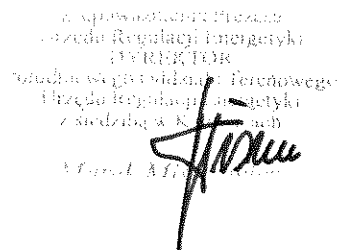 z upoważnienia Prezesa
Urzędu Regulacji Energetyki
DYREKTOR
Południowego Oddziału Terenowego
Urzędu Regulacji Energetyki
z siedzibą w
Marek